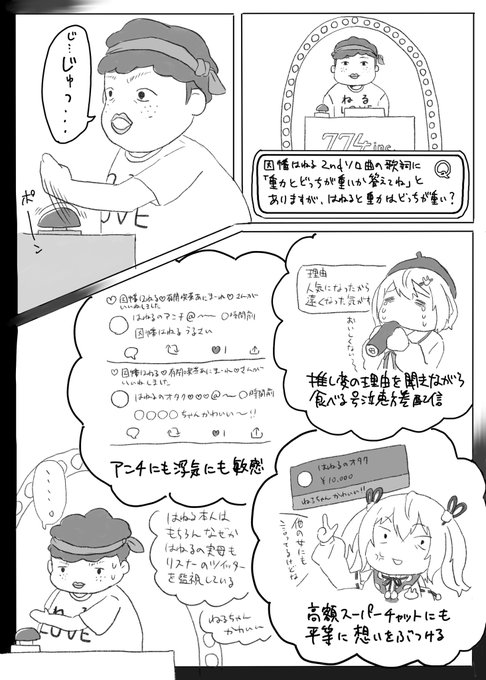 ねる
LOVE
774inc.
因幡はねる2ndソロ曲の歌詞に
「重力とどっちが重いか答えてね」と
ありますが、はねると重力はどっちが重い？
Q
じ…じゅっ・・・
ポン
OVE
理由
人気になったから
遠くなった気がす
おいしくない〜
推し変の理由を聞きながら
食べる号泣恵方巻配信
♡因幡はねる♡有閑喫茶あにまーれ♡さんが
いいねしました
はねるのアンチ@〜〜 〇時間前
因幡はねるうるさい
♡1
♡因幡はねる♡有閑喫茶あにまーれ♡さんが
いいねしました
はねるのオタク♡♡♡@〜〇時間前
〇〇〇〇ちゃんかわいい〜!!
♡1
アンチにも浮気にも敏感
はねるのオタク
¥10,000
ねるちゃんかわいい!!
他の女にも
言ってるけどな
高額スーパーチャットにも
平等に想いをぶつける
・・・・
はねる本人は
もちろんなぜか
はねるの実母も
リスナーのツイッター
を監視している
ねるちゃん
かわいい〜
ねる
LOVE